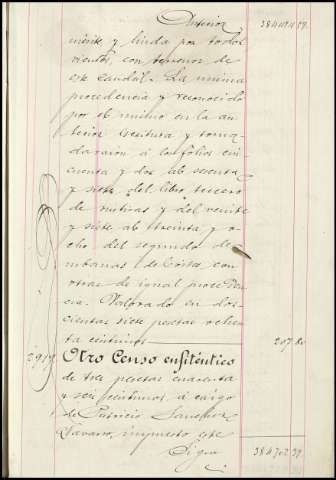 Anterior 384494 59
miente y linda por todos
vientos, con terrenos de
este caudal. La misma
procedencia y reconocido
por el mismo en la an-
terior escritura y toma-
da razón á los folios cin-
cuenta y dos al sesenta
y siete del libro tercero
de rústicas y del veinte
y siete al treinta y o-
cho del segundo de
urbanas de Cortes con
otras de igual proceden-
cia. Valorado en dos-
cientas siete pesetas ochen-
ta céntimos 207 80
Otro Censo enfitéutico
de tres pesetas cuarenta
y seis céntimos á cargo
de Patricio Sanchez
Navarro, impuesto sobre
Sigue 384702 39